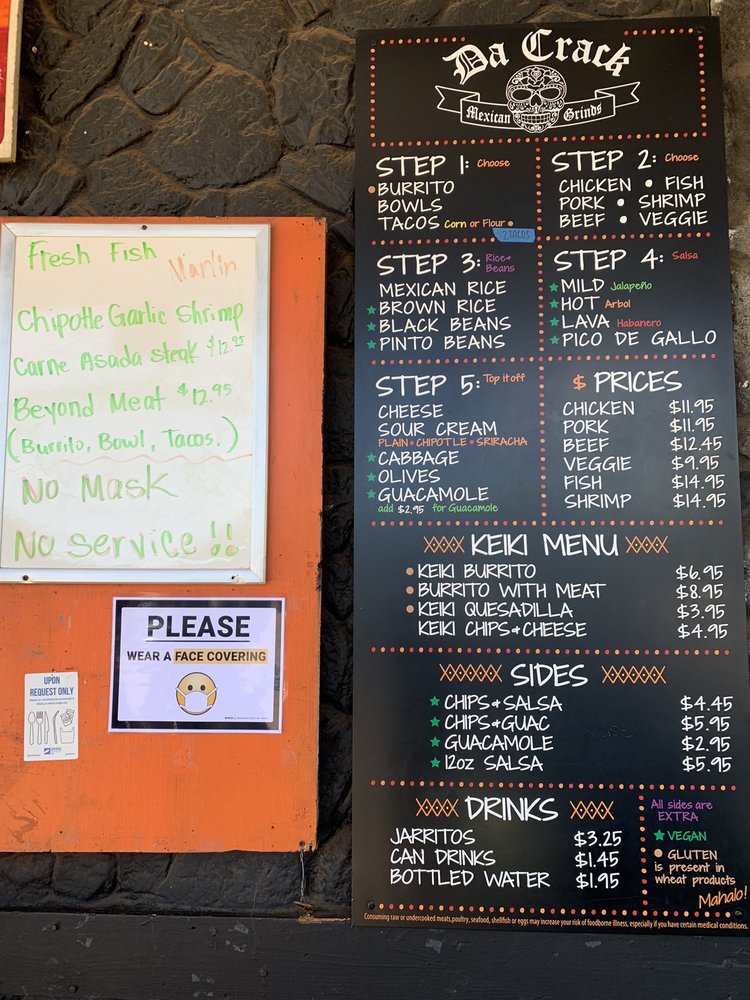 Fresh Fish
Marlin
Chipotle Garlic Shrimp
Carne Asada steak $12.95
Beyond Meat $12.95
(Burrito, Bowl, Tacos.)
No Mask
No Service!!
PLEASE
WEAR A FACE COVERING
UPON
REQUEST ONLY
Da Crack
Mexican Grinds
STEP 1: Choose
BURRITO
BOWLS
TACOS Corn or Flour
2 TACOS
STEP 2: Choose
CHICKEN • FISH
PORK • SHRIMP
BEEF • VEGGIE
STEP 3: Rice + Beans
MEXICAN RICE
BROWN RICE
BLACK BEANS
PINTO BEANS
STEP 4: Salsa
MILD Jalapeño
HOT Arbol
LAVA Habanero
PICO DE GALLO
STEP 5: Top it off
CHEESE
SOUR CREAM
PLAIN • CHIPOTLE • SRIRACHA
CABBAGE
OLIVES
GUACAMOLE
add $2.95 for Guacamole
$ PRICES
CHICKEN $11.95
PORK $11.95
BEEF $12.45
VEGGIE $9.95
FISH $14.95
SHRIMP $14.95
KEIKI MENU
KEIKI BURRITO $6.95
BURRITO WITH MEAT $8.95
KEIKI QUESADILLA $3.95
KEIKI CHIPS+CHEESE $4.95
SIDES
CHIPS+SALSA $4.45
CHIPS+GUAC $5.95
GUACAMOLE $2.95
12oz SALSA $5.95
DRINKS
JARRITOS $3.25
CAN DRINKS $1.45
BOTTLED WATER $1.95
All sides are
EXTRA
VEGAN
GLUTEN
is present in
wheat products
Mahalo!
Consuming raw or undercooked meats,poultry, seafood, shellfish or eggs may increase your risk of foodborne illness, especially if you have certain medical conditions.